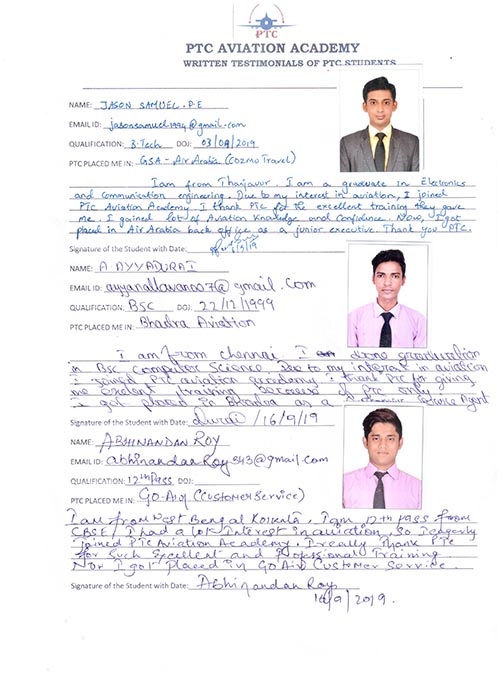 PTC
PTC AVIATION ACADEMY
WRITTEN TESTIMONIALS OF PTC STUDENTS
NAME: JASON SAMUEL.P.E
EMAIL ID: jasonsamuel1994@gmail.com
QUALIFICATION: B.Tech DOJ: 03/09/2019
PTC PLACED ME IN: GSA - Air Arabia (Cozmo Travel)
I am from Thanjavur. I am a graduate in Electronics
and communication engineering. Due to my interest in aviation, I joined
PTC Aviation Academy. I thank PTC for the excellent training they gave
me. I gained lot of Aviation knowledge and confidence. Now, I got
placed in Air Arabia back office as a junior executive. Thank you PTC.
Signature of the Student with Date:
NAME: A AYYADURAI
EMAIL ID: ayyanallavanoo7@gmail.com
QUALIFICATION: BSC DOJ: 22/12/1999
PTC PLACED ME IN: Bhadra Aviation
I am from chennai. I done graduation
in Bsc Computer Science. Due to my interest in aviation
I joined PTC aviation academy I thank PTC for giving
me training because of PTC only
I got placed in Bhadra as a Service Agent
Signature of the Student with Date: Durai /16/9/19
NAME: ABHINANDAN ROY
EMAIL ID: abhinandanRoy543@gmail.com
QUALIFICATION: 12th Pass DOJ:
PTC PLACED ME IN: GO-Air (Customer Service)
I am from West Bengal Kolkata, I am 12th Pass From
CBSE, I had a lot Interest in aviation, So I
joined PTC Aviation Academy. I really Thank PTC
for Such Excellent and Training.
Now I got placed in Go Air Customer Service.
Signature of the Student with Date: Abhinandan Roy
16/9/2019.